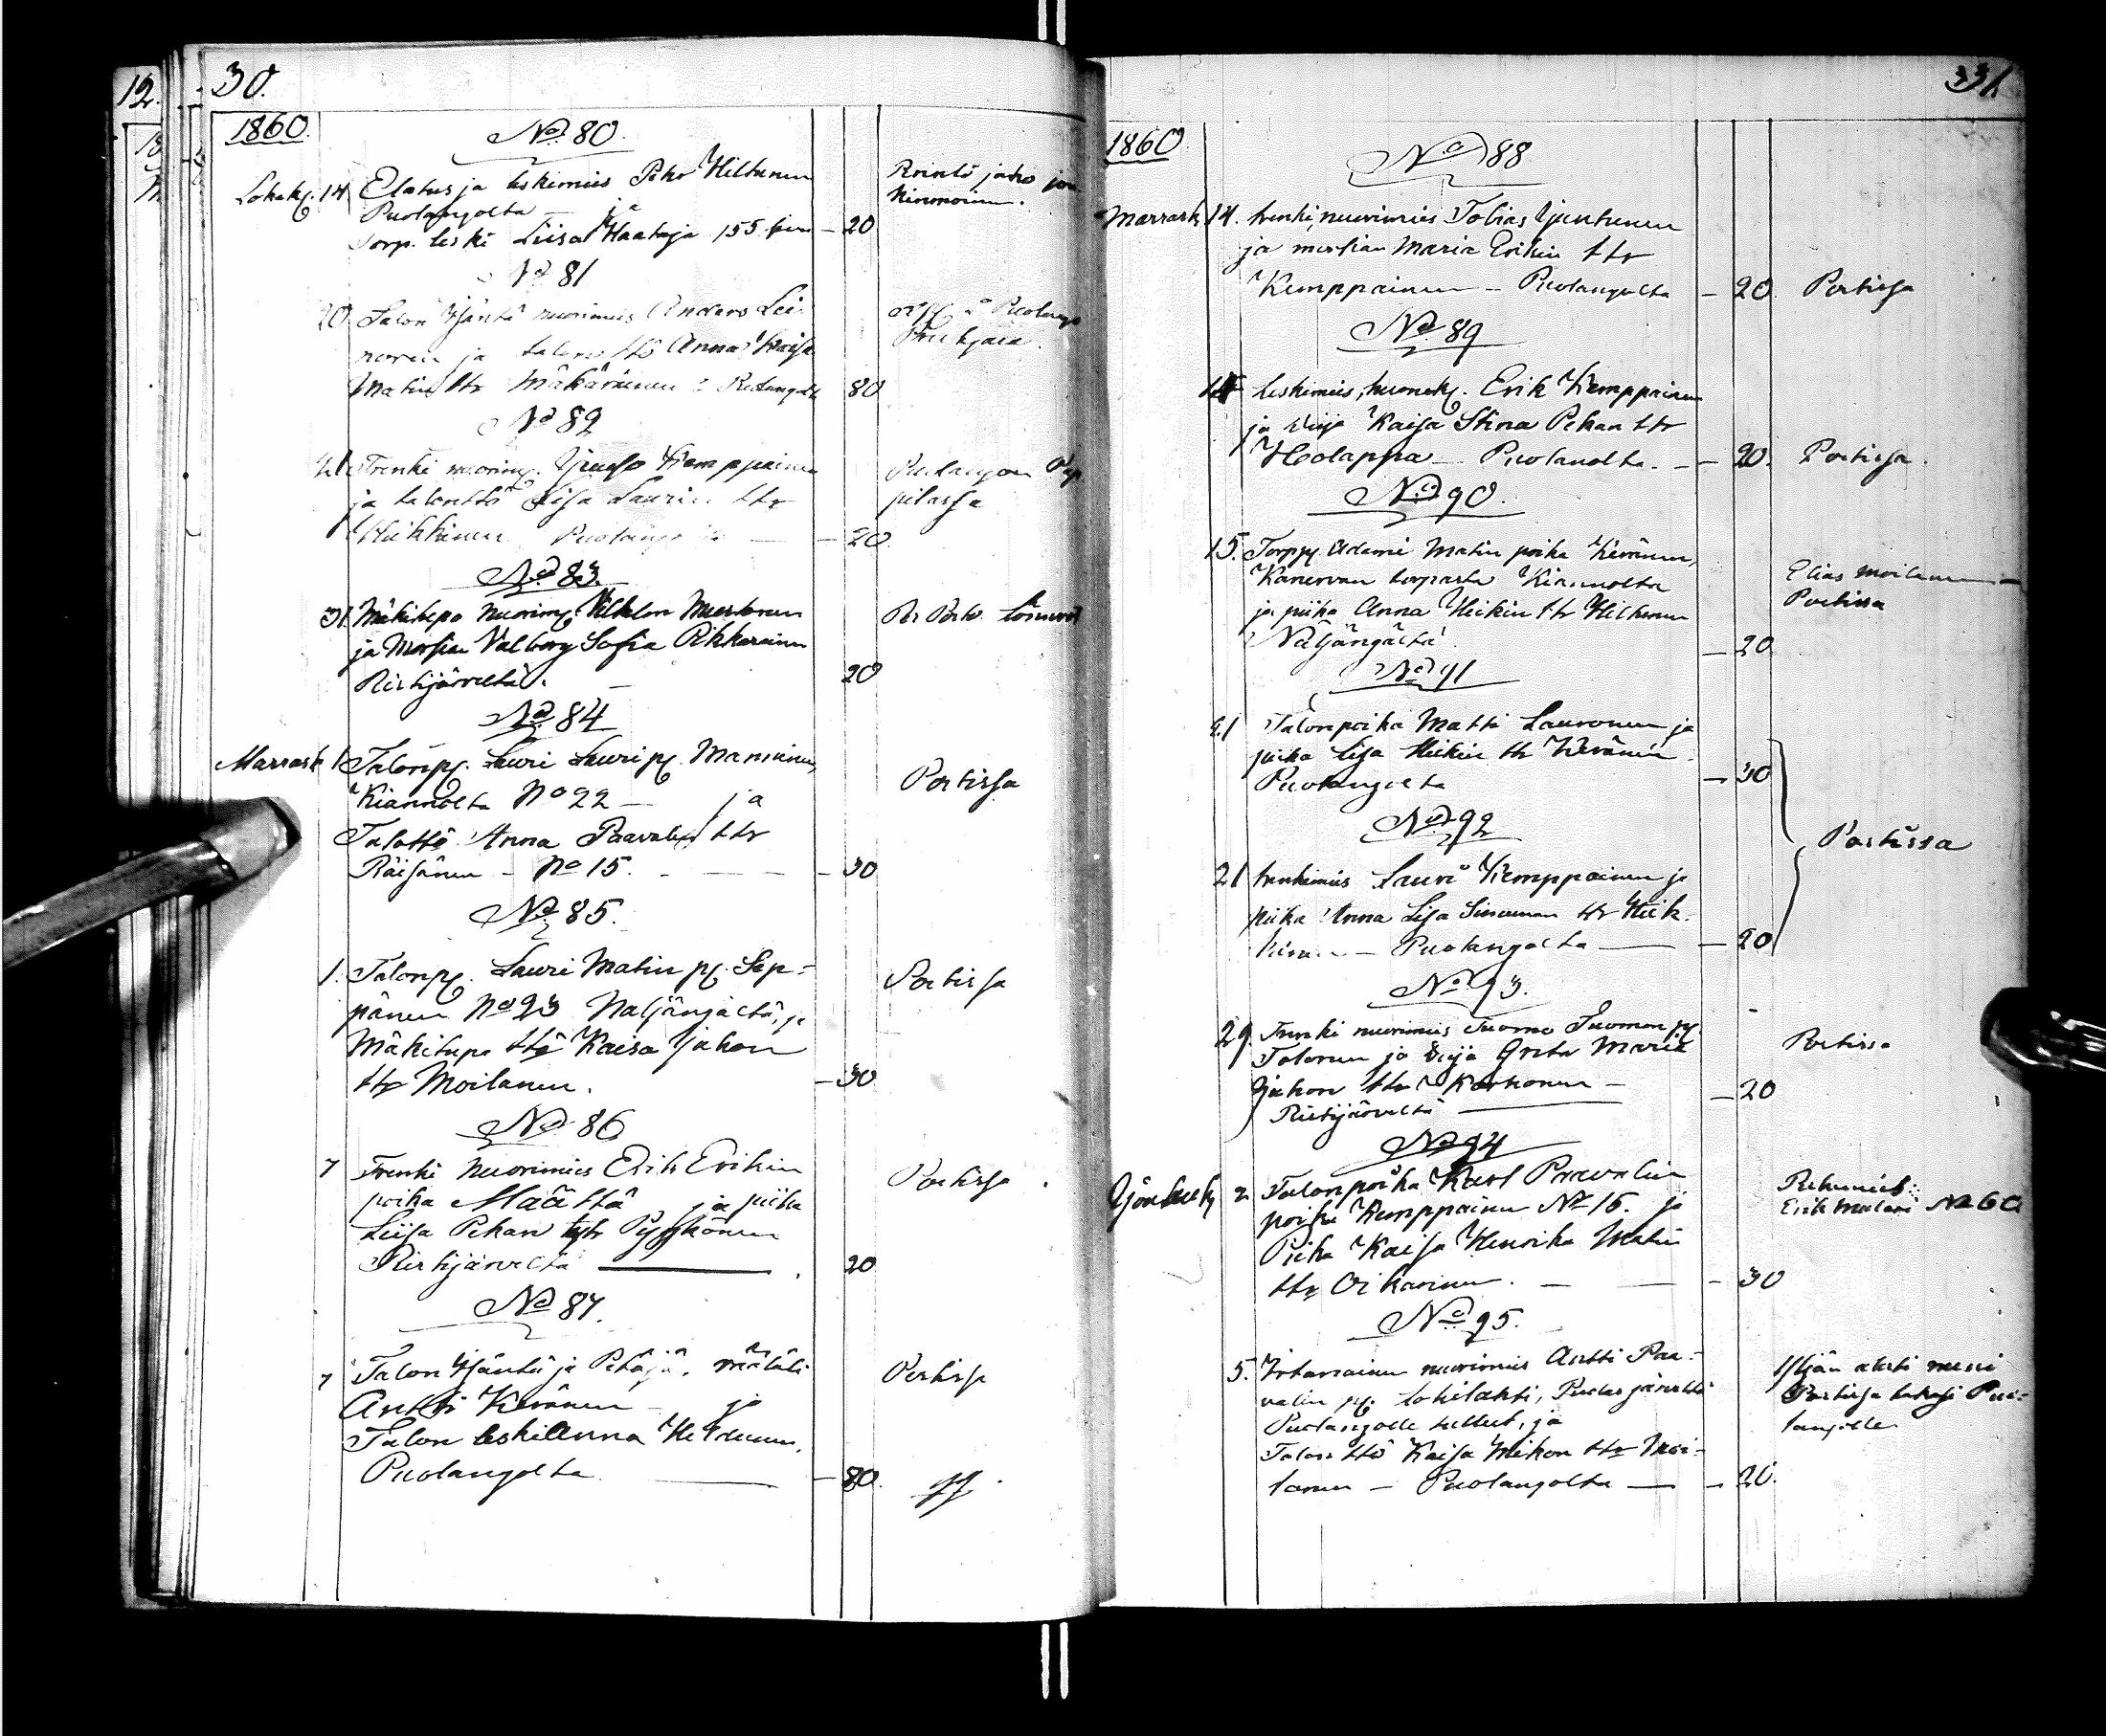 12.
30.
1860.
No 80.
Lokak. 14. Elatus ja leskimies Pekr Hiltunen
Puolangolta — ja
Torp. leski Liisa Haataja 155. — 20
No 81
20. Talon Isäntä nuorimies Anders Lei-
nonen ja talon ttö Anna Kaisa
Matin ttr Mäkäräinen Puolangolta 80
No 82
21. Trenki nuorim. Kemppainen
ja talonttö Lisa Laurin ttr
Heikkinen Puolangolta — 20
Puolangon Pap
pilassa
No 83.
31. Mäkitupa nuorim. Mustonen
ja Morsian Valborg Sofia Pikkarainen
Ristijärveltä. — 20
No 84
Marrask 1. Talonp. Lauri Lauri p. Manninen,
Kiannolta No 22 — ja
Talottö Anna Paavalin ttr
Räisänen — No 15. — 30
Portissa
No 85.
1. Talonp. Lauri Matin p. Sep-
pänen No 23 Naljängältä, ja
Mäkitupa ttö Kaisa Juhon
ttr Moilanen. — 30
Portissa
No 86
7 Trenki Nuorimies Erik Erikin
poika Määttä ja piika
Liisa Pekan tytr Pyykkönen
Ristijärveltä — 20
Portissa.
No 87.
7 Talon Isäntä ja
Antti Keränen — ja
Talon leski Anna
Puolangolta — 80.
Portissa
331.
1860
No 88
Marrask 14. trenki, nuorimies Tobias Juntunen
ja morsian Maria Erikin ttr
Kemppainen — Puolangolta — 20. Portissa
No 89
14 leskimies, huonek. Erik Kemppainen
ja Kaisa Stina Pekan ttr
Holappa — Puolanolta. — 20. Portissa.
No 90.
15. Torpp. Adami Matin poika Keränen,
Kanervan torpasta Kiannolta
ja piika Anna Heikin ttr Hiltunen
Näljängältä — 20
Elias Moilanen
Portissa
No 91
21 Talonpoika Matti Lauronen ja
piika Lisa Heikin ttr Keränen
Puolangolta — 30
No 92
21 trenkimies Lauri Kemppainen ja
piika Anna Lisa Simunan ttr Heik-
kinen — Puolangolta — 20
Portissa
No 93.
29. Trenki nuorimies Tuomo Tuomon p.
Tolonen ja Greta Maria
Juhon ttr Karhonen —
Ristijärveltä — 20
Portissa
No 94
Jouluk. 2. Talonpoika Karl Paavalin
poika Kemppainen No 16. ja
Piika Kaisa Henrika Matin
ttr Oikarinen. — 30
Erik Mulari No 60
No 95.
5. nuorimies Antti Paa-
valin p. Lohilahti, Pudasjärveltä
Puolangolle tullut, ja
Talon ttö Kaisa Mikon ttr Moi-
lanen — Puolangolta — 20.
Portissa Puo-
langolle